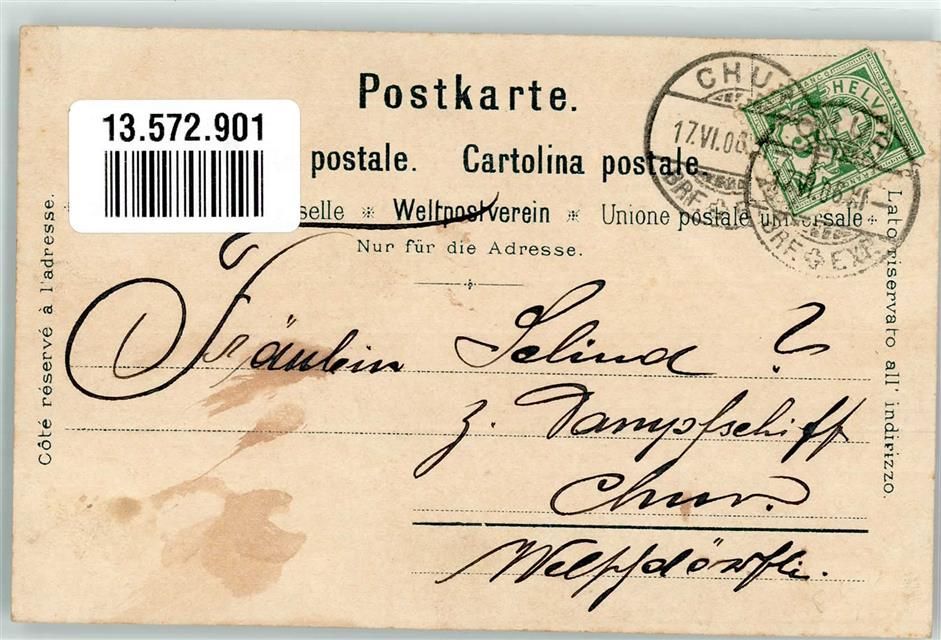 Postkarte.
13.572.901
postale. Cartolina postale.
selle * Weltpostverein * Unione postale universale
Nur für die Adresse.
Côté réservé à l'adresse.
Lato riservato all' indirizzo.
CHUR
17.VI.06
BRF. EXP.
HELVETIA
FRANCO
Fräulein Selina ?
z. Dampfschiff
Chur.
Welschdörfli.